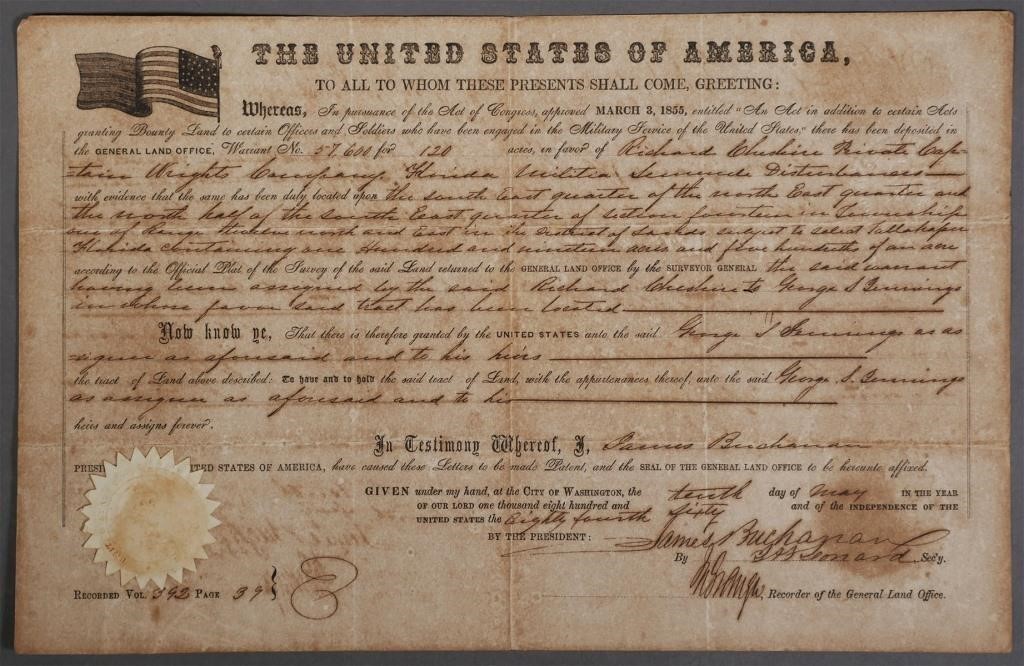 THE UNITED STATES OF AMERICA,
TO ALL TO WHOM THESE PRESENTS SHALL COME, GREETING:
Whereas, In pursuance of the Act of Congress, approved MARCH 3, 1855, entitled "An Act in addition to certain Acts
granting Bounty Land to certain Officers and Soldiers who have been engaged in the Military Service of the United States," there has been deposited in
the GENERAL LAND OFFICE, Warrant No. 57,600 for 120 acres, in favor of Richard Cheshire Private Cap-
-tain Wrights Company Florida Militia Seminole Disturbances
with evidence that the same has been duly located upon the South East quarter of the north East quarter and
the north half of the South East quarter of section fourteen in Township
one of Range north and East in the District of Lands subject to sale at Tallahassee
Florida containing one Hundred and nineteen acres and five hundredths of an acre
according to the Official Plat of the Survey of the said Land returned to the GENERAL LAND OFFICE by the SURVEYOR GENERAL the said warrant
having been assigned by the said Richard Cheshire to George S Jennings
in whose favor said tract has been located
Now know ye, That there is therefore granted by the UNITED STATES unto the said George S Jennings as as
-signee as aforesaid and to his heirs
the tract of Land above described: To have and to hold the said tract of Land, with the appurtenances thereof, unto the said George S. Jennings
as assignee as aforesaid and to his
heirs and assigns forever.
In Testimony Whereof, I, James Buchanan
PRESI TED STATES OF AMERICA, have caused these Letters to be made Patent, and the SEAL OF THE GENERAL LAND OFFICE to be hereunto affixed.
GIVEN under my hand, at the CITY OF WASHINGTON, the tenth day of May IN THE YEAR
OF OUR LORD one thousand eight hundred and sixty and of the INDEPENDENCE OF THE
UNITED STATES the Eighty fourth
BY THE PRESIDENT: James Buchanan
By Leonard Sec'y.
Recorder of the General Land Office.
RECORDED VOL. 392 PAGE 39